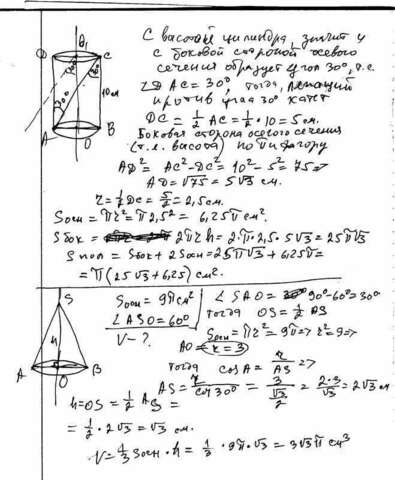 С высотой цилиндра, значит и
с боковой стороной осевого
сечения образует угол 30°, т.е.
∠DAC = 30°, тогда, лежащий
против угла 30° катет
DC = 1/2 AC = 1/2 · 10 = 5 см.
Боковая сторона осевого сечения
(т.е. высота) по Пифагору
AD² = AC² - DC² = 10² - 5² = 75 =>
AD = √75 = 5√3 см.
r = 1/2 DC = 5/2 = 2,5 см.
Sосн = πr² = π2,5² = 6,25π см².
Sбок = 2πrh = 2·π·2,5·5√3 = 25π√3
Sпол = Sбок + 2Sосн = 25π√3 + 6,25π =
= π(25√3 + 6,25) см².
D O₁ C
30°
10 см
A O B
S
h
A O B
Sосн = 9π см²
∠ASO = 60°
V - ?
∠SAO = 90° - 60° = 30°
тогда OS = 1/2 AS
Sосн = πr² = 9π => r² = 9 =>
AO = r = 3
тогда cos A = r/AS =>
AS = r/cos 30° = 3/(√3/2) = 2·3/√3 = 2√3 см
h = OS = 1/2 AS =
= 1/2 · 2√3 = √3 см.
V = 1/3 Sосн · h = 1/3 · 9π · √3 = 3√3 π см³